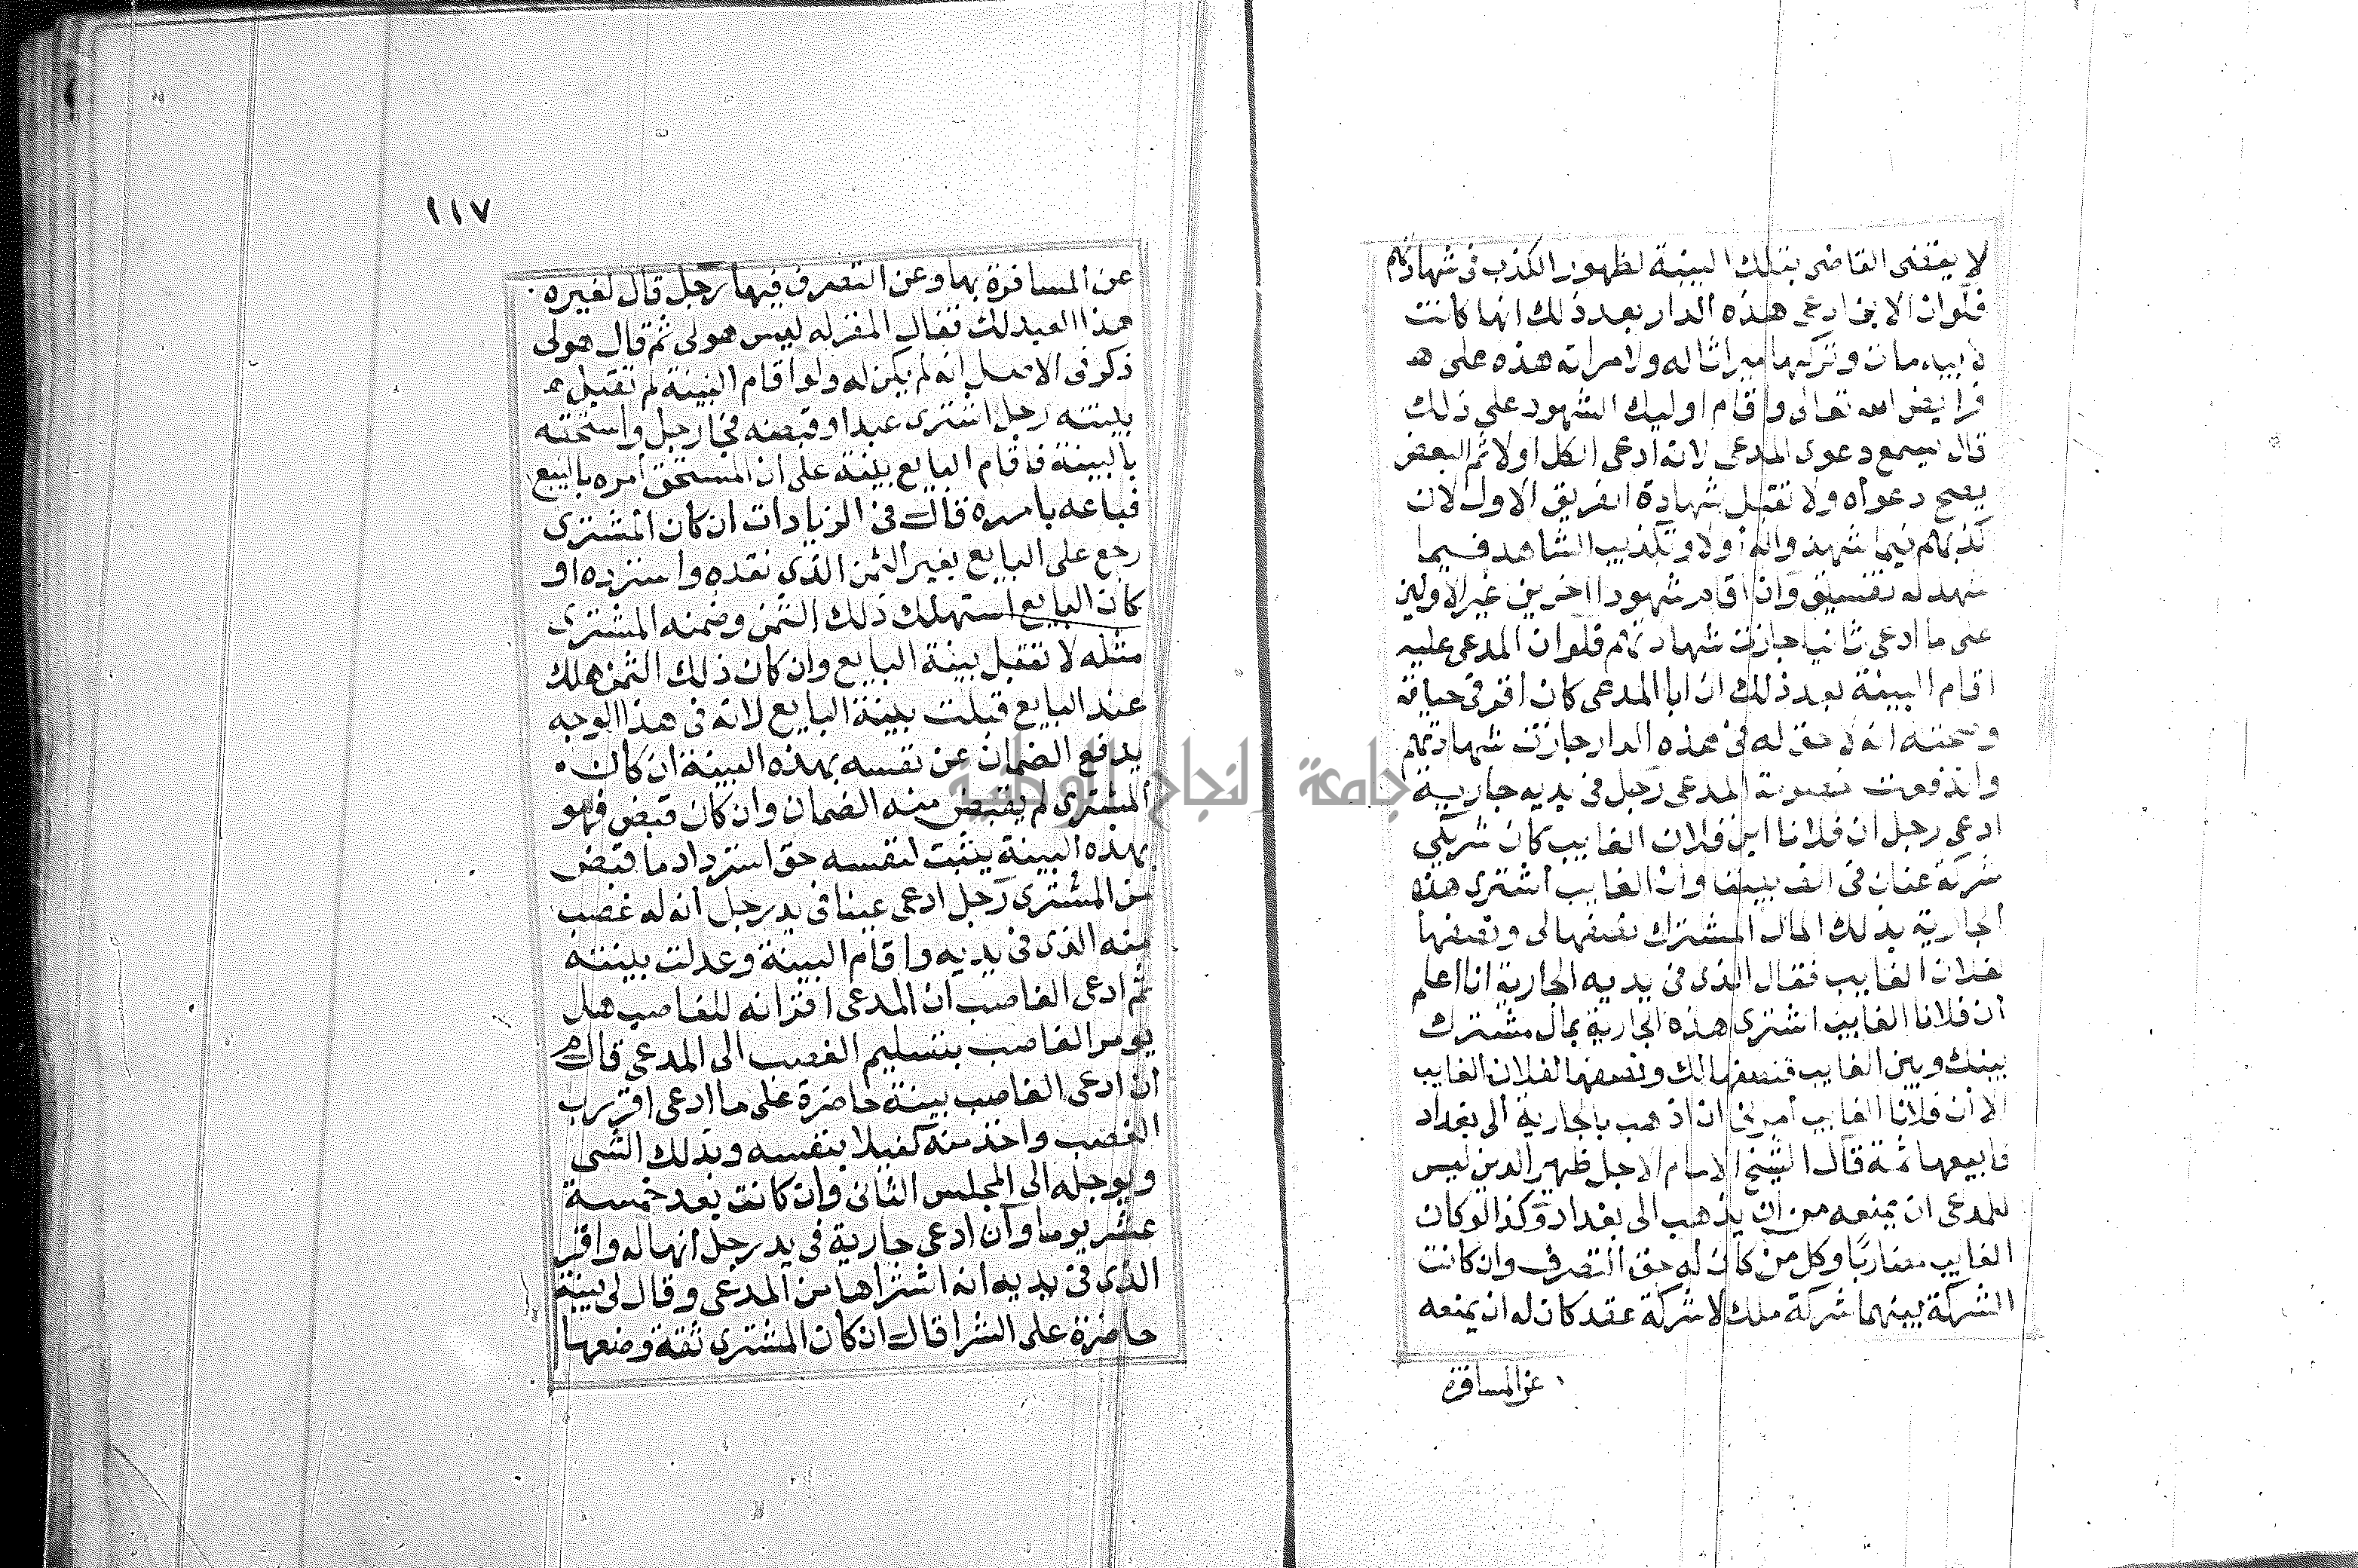 لا يقضى القاضى بتلك البينة لظهور الكذب فى شهادتهم
فلو ان الابن ادعى هذه الدار بعد ذلك انها كانت
لابيه مات وتركها ميراثا له ولامراته هذه على
فرايض الله تعالى واقام اوليك الشهود على ذلك
قال يسمع دعوى المدعى لانه ادعى الكل اولا ثم البعض
يصح دعواه ولا تقبل شهادة الفريق الاول لان
كذبهم فيما شهدوا له اولا وتكذيب الشاهد فيما
شهد له تفسيق وان اقام شهودا اخرين غير الاولين
على ما ادعى ثانيا جازت شهادتهم فلو ان المدعى عليه
اقام البينة بعد ذلك ان ابا المدعى كان اقر فى حياته
وصحته انه لا حق له فى هذه الدار جازت شهادتهم
واندفعت خصومة المدعى رجل فى يديه جارية
ادعى رجل ان فلانا ابن فلان الغايب كان شريكى
شركة عنان فى الف بيننا وان الغايب اشترى هذه
الجارية بذلك المال المشترك نصفها لى ونصفها
لفلان الغايب فقال الذى فى يديه الجارية انا اعلم
ان فلانا الغايب اشترى هذه الجارية بمال مشترك
بينك وبين الغايب فنصفها لك ونصفها لفلان الغايب
الا ان فلانا الغايب امرنى ان اذهب بالجارية الى بغداد
فابيعها ثمة قال الشيخ الامام الاجل ظهير الدين ليس
للمدعى ان يمنعه من ان يذهب الى بغداد وكذا لو كان
الغايب مضاربا وكل من كان له حق التصرف وان كانت
الشركة بينهما شركة ملك لا شركة عقد كان له ان يمنعه
عن المسافرة
١١٧
عن المسافرة بها وعن التصرف فيها رجل قال لغيره
هذا العبد لك فقال المقر له ليس هو لى ثم قال هو لى
ذكر فى الاصل انه لم يكن له ولو اقام البينة لم تقبل
بينته رجل اشترى عبدا وقبضه فجا رجل واستحقه
بالبينة فاقام البايع بينة على ان المستحق امره بالبيع
فباعه بامره قال فى الزيادات ان كان المشترى
رجع على البايع بغير الثمن الذى نقده واسترده او
كان البايع استهلك ذلك الثمن وضمنه المشترى
مثله لا تقبل بينة البايع وان كان ذلك الثمن هلك
عند البايع قبلت بينة البايع لانه فى هذا الوجه
يدفع الضمان عن نفسه بهذه البينة ان كان
المشترى لم يقبض منه الضمان وان كان قبض فهو
بهذه البينة يثبت لنفسه حق استرداد ما قبض
من المشترى رجل ادعى عينا فى يد رجل انه له غصب
منه الذى فى يديه واقام البينة وعدلت بينته
ثم ادعى الغاصب ان المدعى اقر انه للغاصب هل
يومر الغاصب بتسليم الغصب الى المدعى قال
ان ادعى الغاصب بينة حاضرة على ما ادعى اقر برب
الغصب واخذ منه كفيلا بنفسه وبذلك الشى
ويوجله الى المجلس الثانى وان كانت بعد خمسة
عشر يوما وان ادعى جارية فى يد رجل انها له واقر
الذى فى يديه انه اشتراها من المدعى وقال لى بينة
حاضرة على الشرا قال ان كان المشترى ثقة وضعها
جامعة النجاح الوطنية